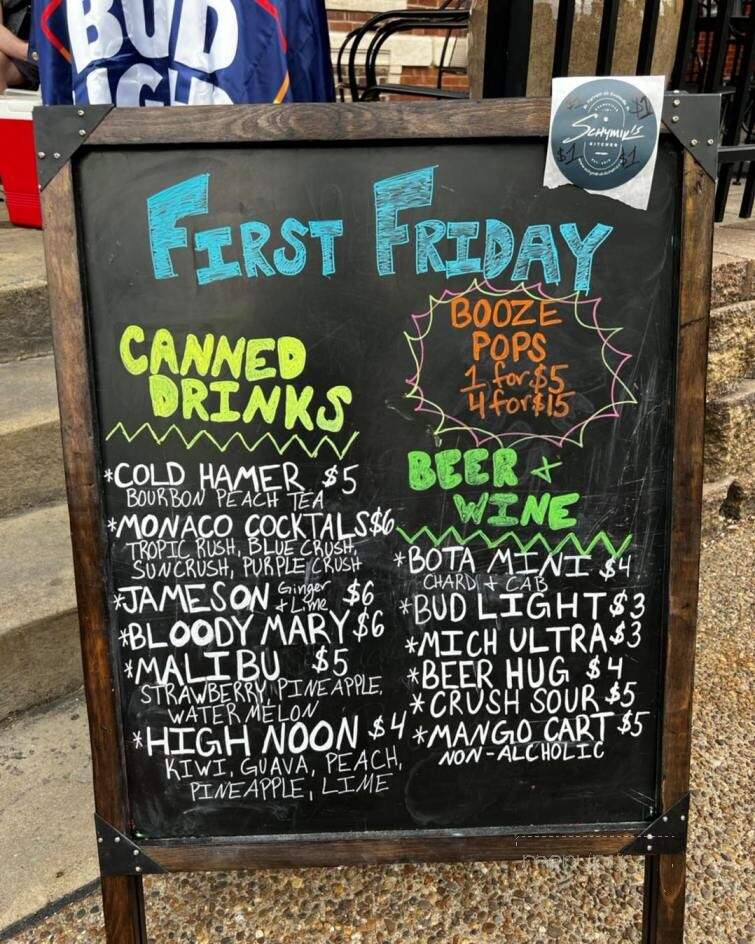 BUD
LIGHT
SCHYMIK'S
KITCHEN
$1
$1
$1
FIRST FRIDAY
BOOZE
POPS
1 for $5
4 for $15
CANNED
DRINKS
*COLD HAMER $5
BOURBON PEACH TEA
*MONACO COCKTAILS $6
TROPIC RUSH, BLUE CRUSH,
SUNCRUSH, PURPLE CRUSH
*JAMESON Ginger + Lime $6
*BLOODY MARY $6
*MALIBU $5
STRAWBERRY, PINEAPPLE,
WATERMELON
*HIGH NOON $4
KIWI, GUAVA, PEACH,
PINEAPPLE, LIME
BEER +
WINE
*BOTA MINI $4
CHARD + CAB
*BUD LIGHT $3
*MICH ULTRA $3
*BEER HUG $4
*CRUSH SOUR $5
*MANGO CART $5
NON-ALCHOLIC